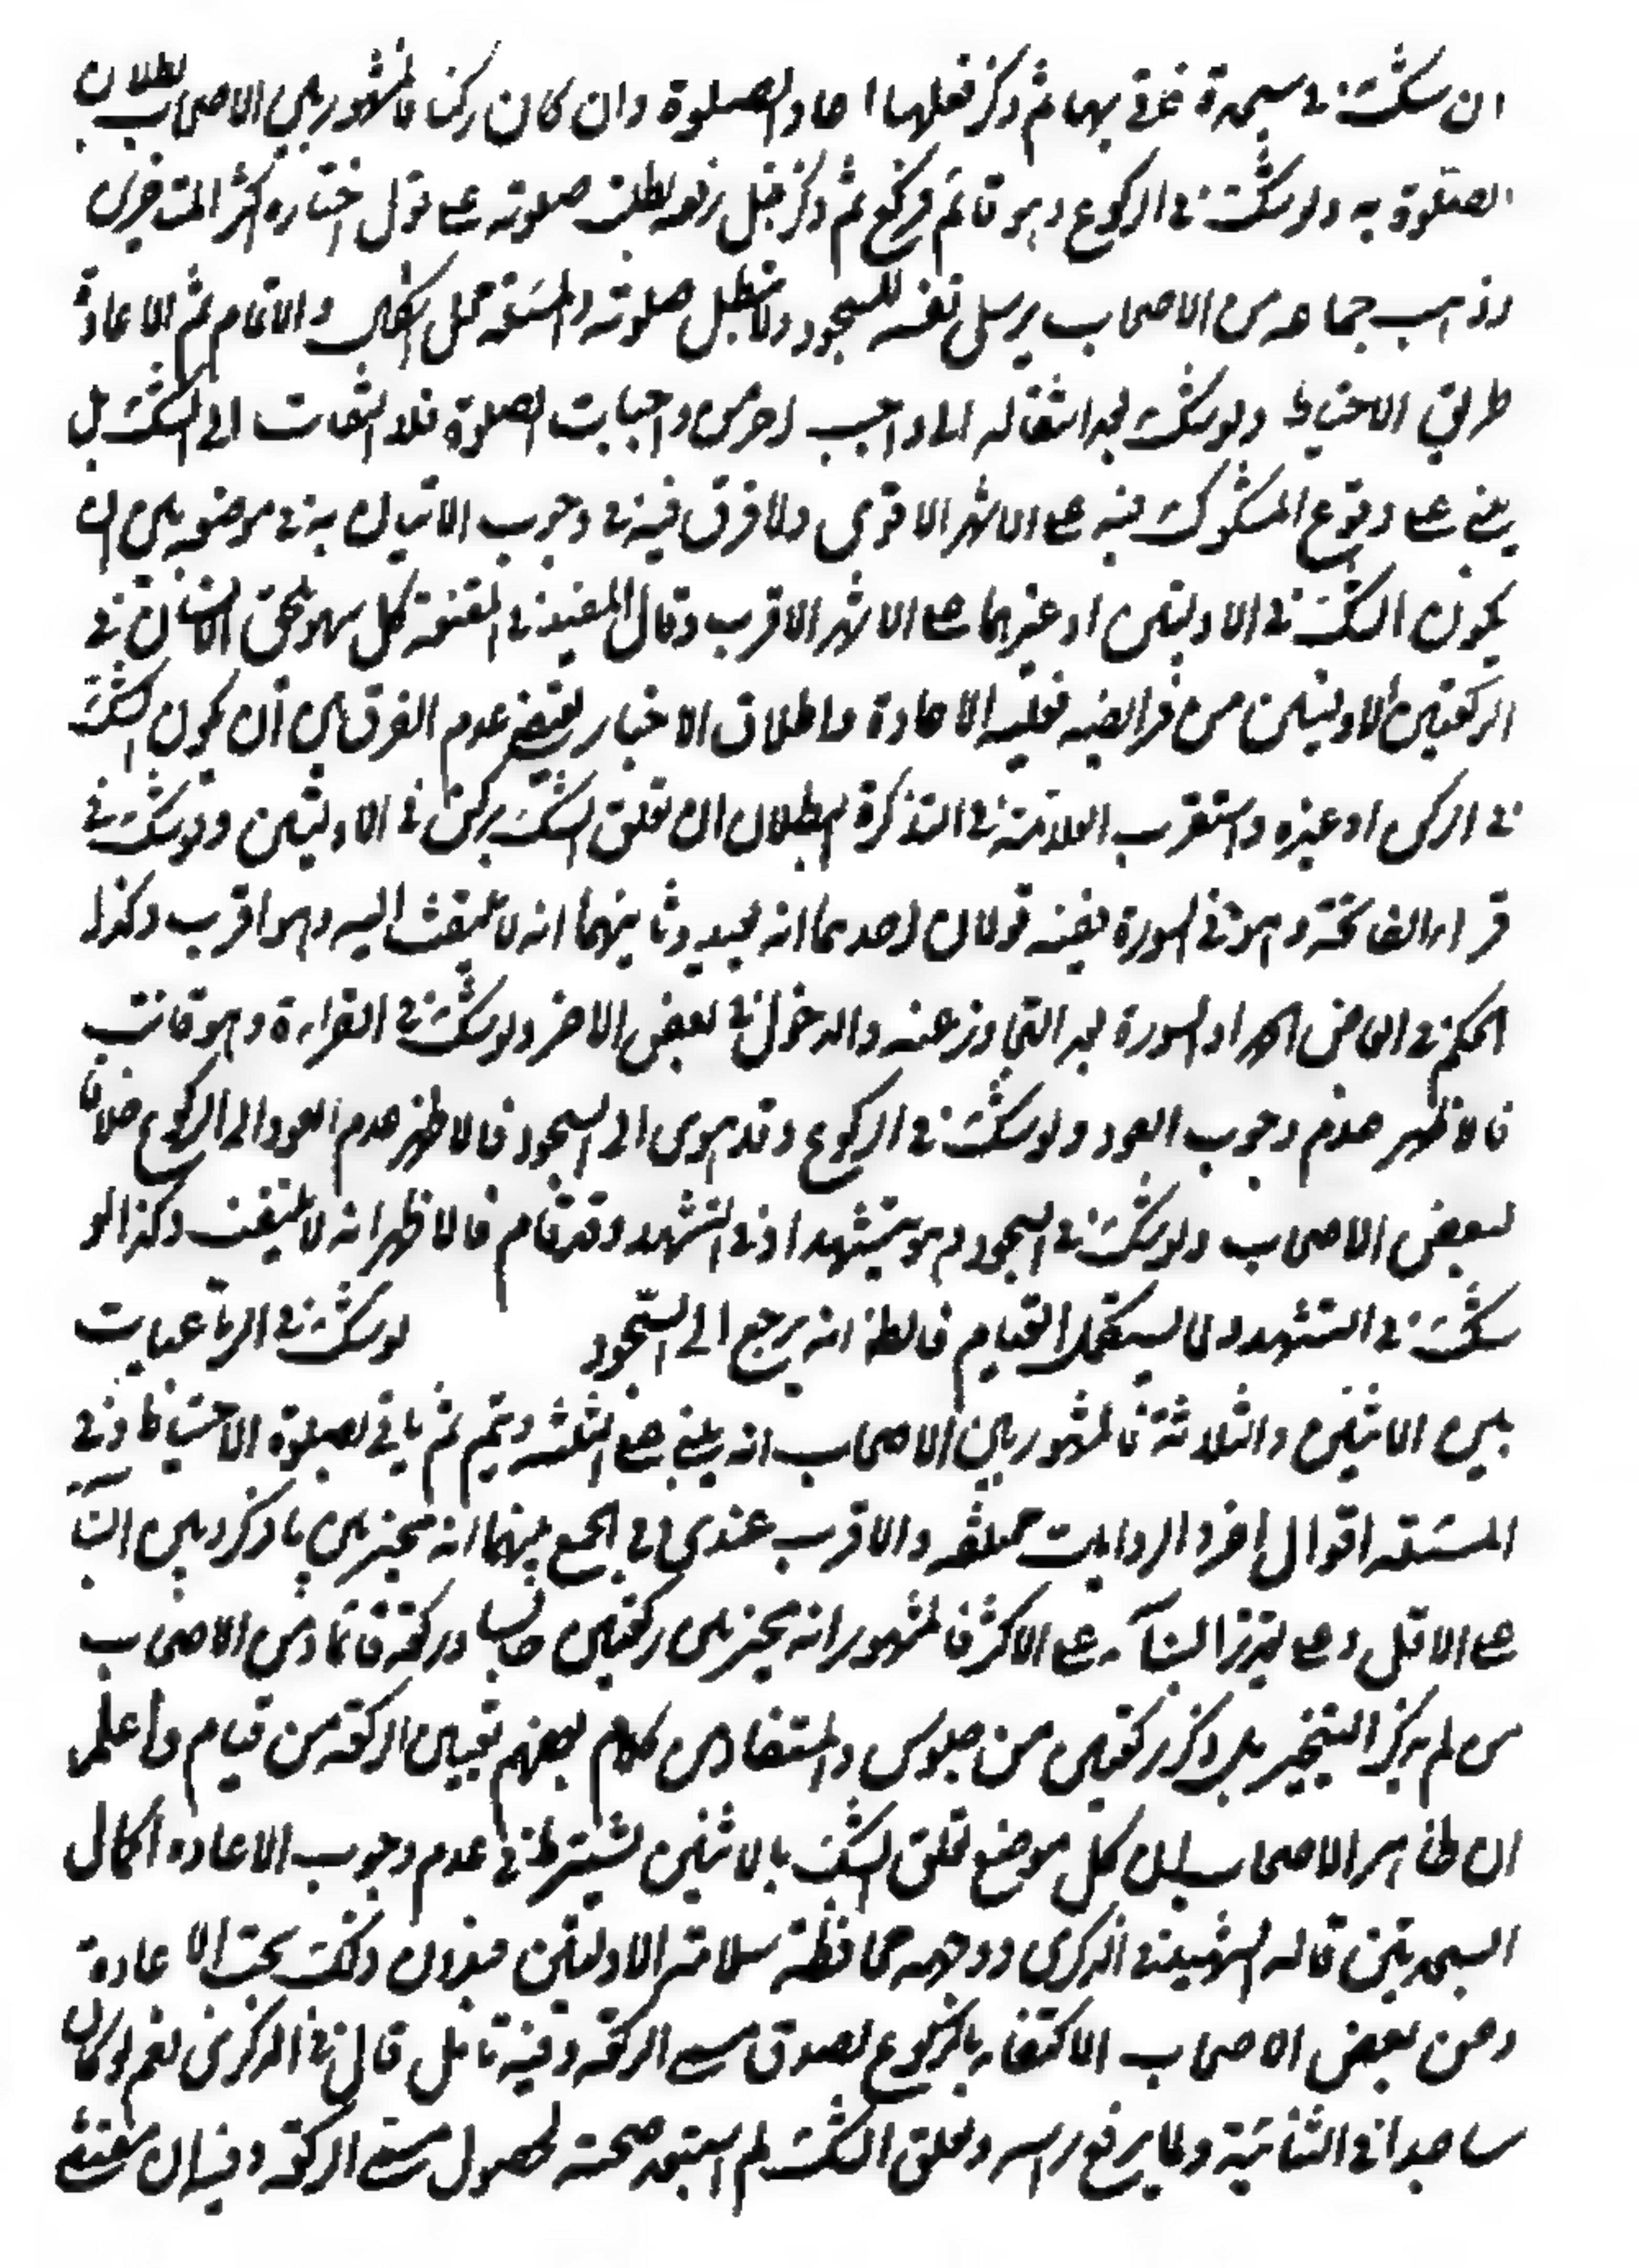 ان شك في سجدة فاتى بها ثم ذكر فعلها اعاد الصلوة وان كان ركنا فالمشهور بين الاصحاب بطلان
الصلوة به ولو شك في الركوع وهو قائم فركع ثم ذكر قبل رفعه بطلت صلوته على قول اختاره اكثر المتاخرين
وذهب جماعة من الاصحاب يرسل نفسه للسجود ولا تبطل صلوته والمسئلة محل اشكال والاتمام ثم الاعادة
طريق الاحتياط ولو شك بعد انتقاله الى واجب اخر من واجبات الصلوة فلا التفات الى الشك بل
يبني على وقوع المشكوك فيه على الاشهر الاقوى ولا فرق فيه في وجوب الاتيان به في موضعه بين ان
يكون الشك في الاوليين او غيرهما على الاشهر الاقرب وقال المفيد في المقنعة كل سهو يلحق الانسان في
الركعتين الاوليين من فرائضه فعليه الاعادة واطلاق الاخبار يقتضي عدم الفرق بين أن يكون الشك
في الركن او غيره واستقرب العلامة في التذكرة البطلان ان تعلق الشك بركن في الاوليين ولو شك في
قراءة الفاتحة وهو في السورة ففيه قولان احدهما انه يعيد وثانيهما انه لا يلتفت اليه وهو اقرب وكذا
الحكم في ابعاض الحمد او السورة بعد التجاوز عنه والدخول في بعض الاخر ولو شك في القراءة وهو قانت
فالاظهر عدم وجوب العود ولو شك في الركوع وقد هوى الى السجود فالاظهر عدم العود الى الركوع خلافا
لبعض الاصحاب ولو شك في السجود وهو يتشهد او في التشهد وقد قام فالاظهر انه لا يلتفت وكذا لو
شك في التشهد ولما يستكمل القيام فالظ انه يرجع الى السجود لو شك في الرباعيات
بين الاثنين والثلاثة فالمشهور بين الاصحاب انه يبني على الثلث ويتم ثم ياتي بصلوة الاحتياط وفي
المسئلة اقوال اخر والروايات مختلفة والاقرب عندي في الجمع بينهما انه مخير بين ما ذكر وبين البناء
على الاقل وعلى تقدير البنآء على الاكثر فالمشهور انه مخير بين ركعتين جالسا وركعة قائما ومن الاصحاب
من لم يذكر التخيير بل ذكر ركعتين من جلوس والمستفاد من كلام بعضهم تعيين الركعة من قيام واعلم
ان ظاهر الاصحاب ان كل موضع تعلق الشك بالاثنين يشترط في عدم وجوب الاعادة اكمال
السجدتين قاله الشهيد في الذكرى ووجهه محافظة سلامة الاوليين فبدون ذلك يجب الاعادة
وعن بعض الاصحاب الاكتفاء بالركوع لصدق مسمى الركعة وفيه تامل قال في الذكرى نعم لو كان
ساجدا في الثانية ولما يرفع راسه وتعلق الشك لم استبعد صحته لحصول مسمى الركعة وفيه ان مقتضى